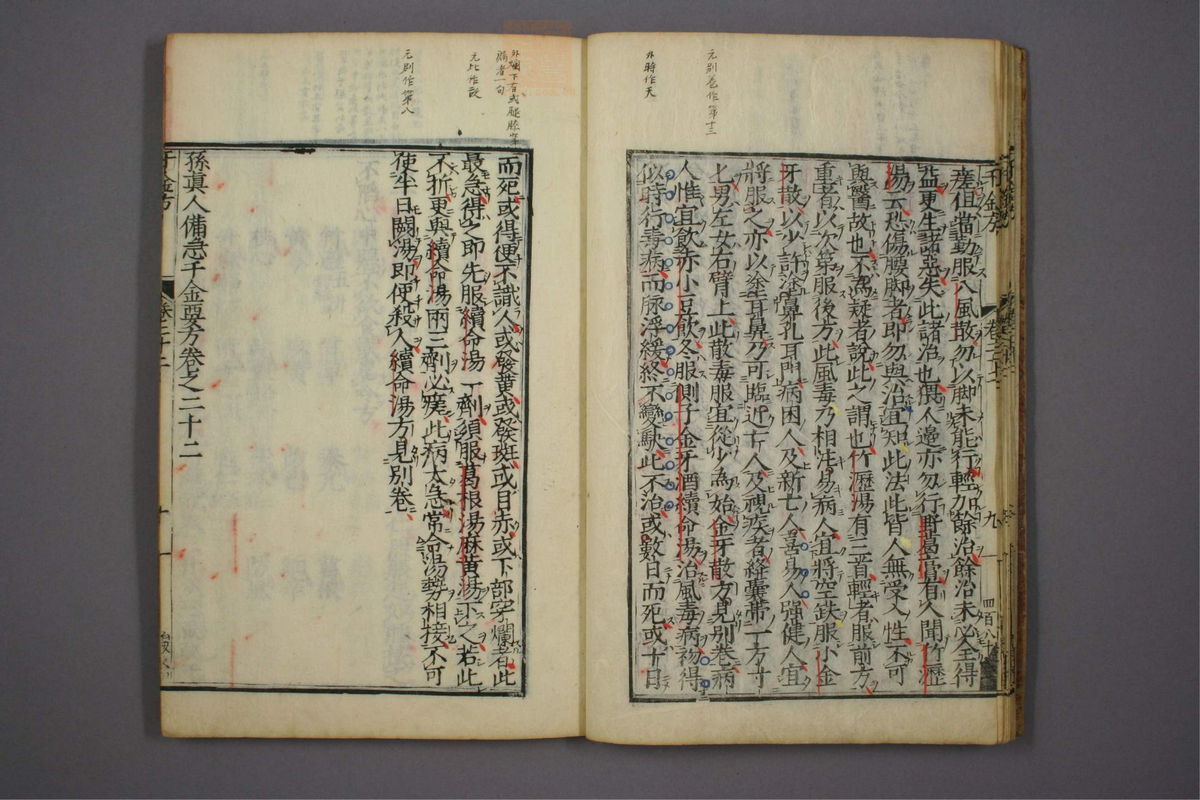 元別卷作第十三
外臺作天
瘥但當勤服八風散勿以脚未能行輕加餘治餘治未必全得
益更生諸惡失此諸治也偶人邊亦勿行野葛膏有人聞竹瀝
湯云恐傷腰脚者即勿與治宜知此法此皆人無受人性不可
與醫故也不為疑者說此之謂也竹瀝湯有三首輕者服前方
重者以次第服後方此風毒乃相注易病人宜將空鈌服小金
牙散以少許塗鼻孔耳門病困人及新亡人喜易人強健人宜
將服之亦以塗耳鼻乃可臨近亡人及視疾者絳囊帶一方寸
匕男左女右臂上此散毒服宜從少為始金牙散方見別卷病
人惟宜飲赤小豆飲冬服側子金牙酒續命湯治風毒病初得
似時行毒病而脉浮緩終不變駃此不治或數日而死或十日
千金方
卷二十二
九
四百八十
外臺下有或腿膝穿
漏者一句
元比作設
元別作第八
而死或得便不識人或發黄或發斑或目赤或下部穿爛者此
最急得之即先服續命湯一劑須服葛根湯麻黄湯下之若此
不折更與續命湯兩三劑必瘥此病大急常令湯勢相接不可
使半日闕湯即便殺人續命湯方見別卷
孫真人備急千金要方卷之二十二
千金方
卷二十二
十